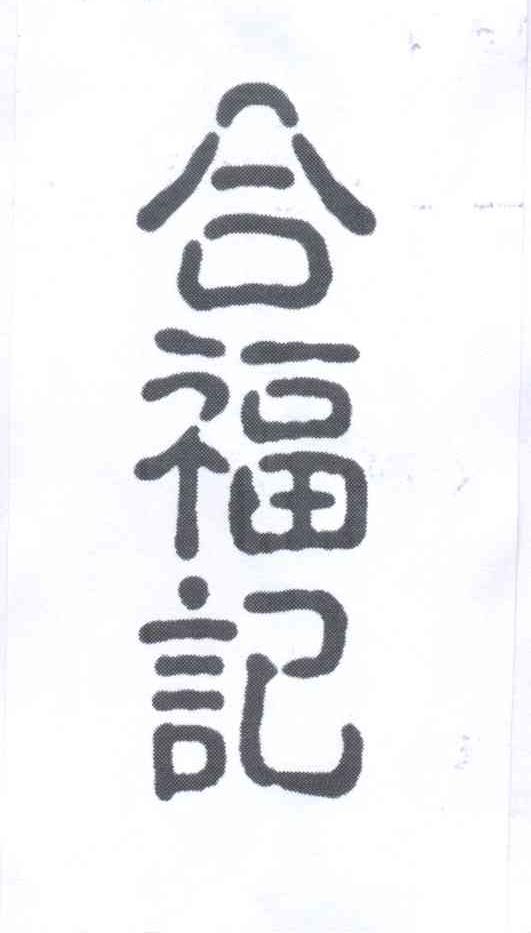 合福記